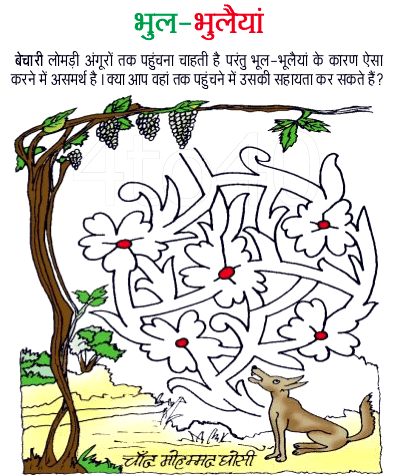 भुल-भुलैयां
बेचारी लोमड़ी अंगूरों तक पहुंचना चाहती है परंतु भूल-भूलैयां के कारण ऐसा
करने में असमर्थ है । क्या आप वहां तक पहुंचने में उसकी सहायता कर सकते हैं?
4to40
चाँद मोहम्मद घोसी